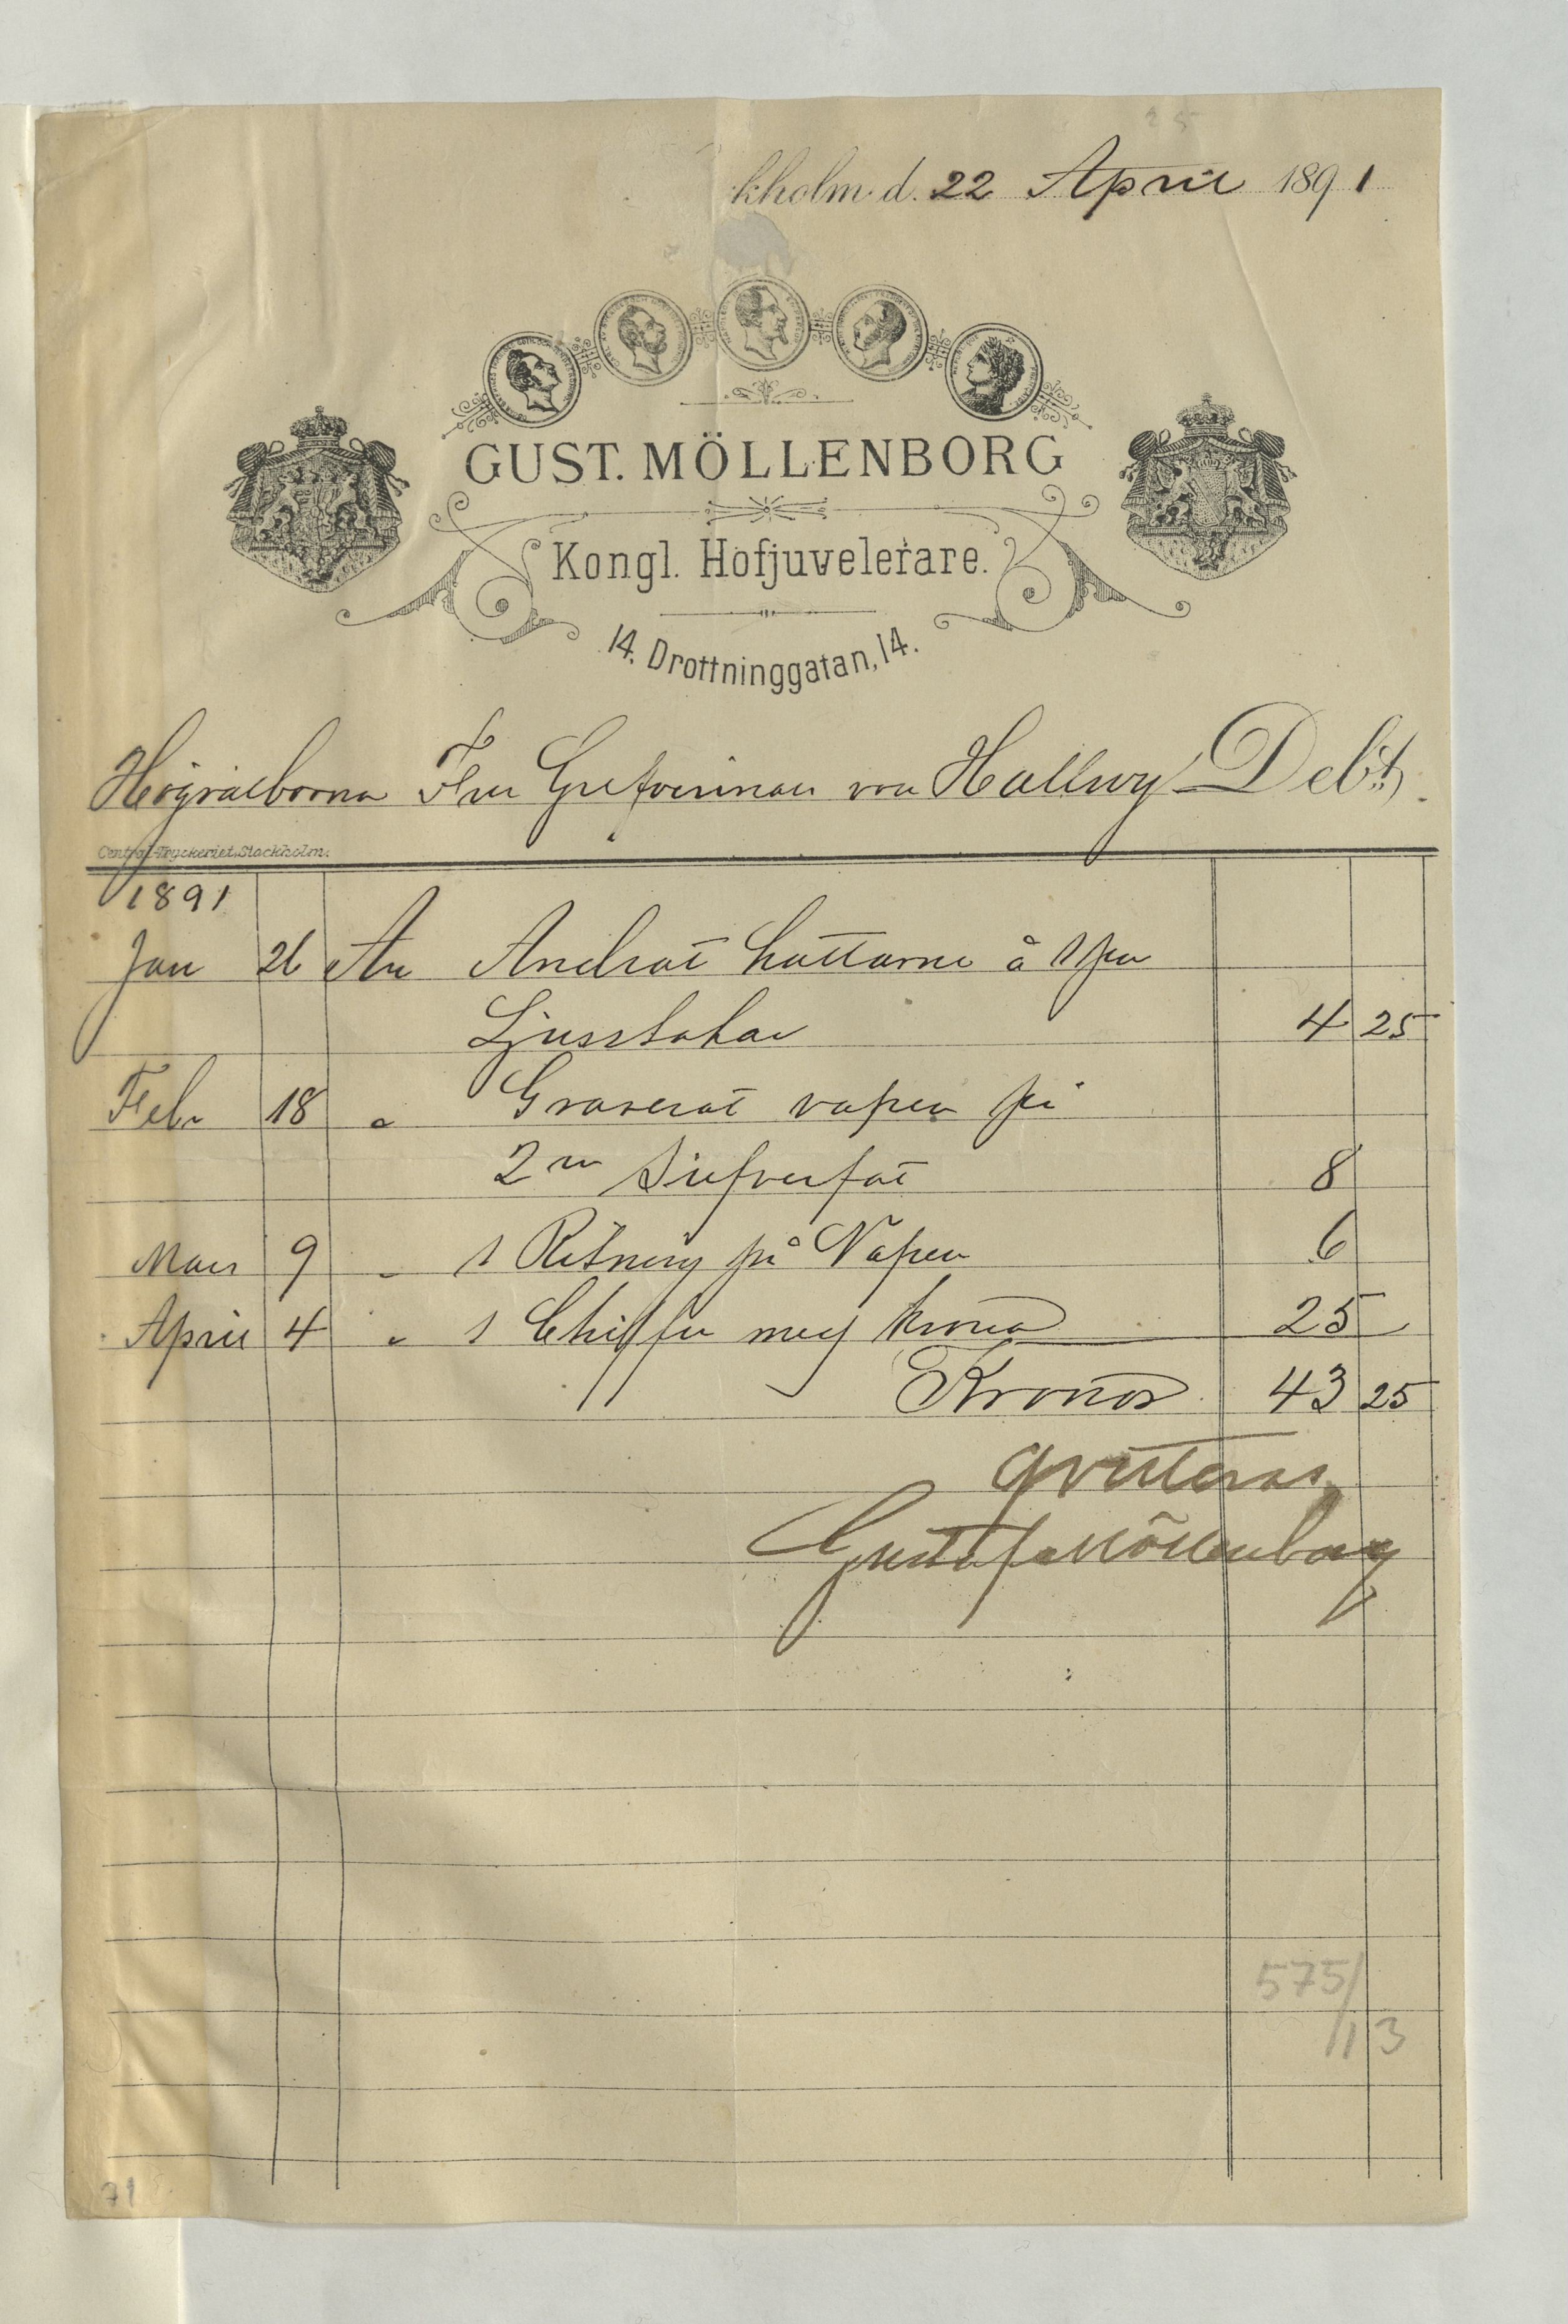 kholm d. 22 April 1891
GUST. MÖLLENBORG
Kongl. Hofjuvelerare.
14, Drottninggatan, 14.
Högvälborna Fru Grefvinnan von Hallwyl Debt.
Central-Tryckeriet, Stockholm.
1891
Jan 26 An Ändrat hattarne å 1 par
Ljusstakar 4 25
Febr 18 " Graverat vapen på
2ne Silfverfat 8
Mars 9 " 1 Ritning på Vapen 6
April 4 " 1 Chiffer med krona 25
Kronor 43 25
Qvitteras
Gustaf Möllenborg
575/
113
71